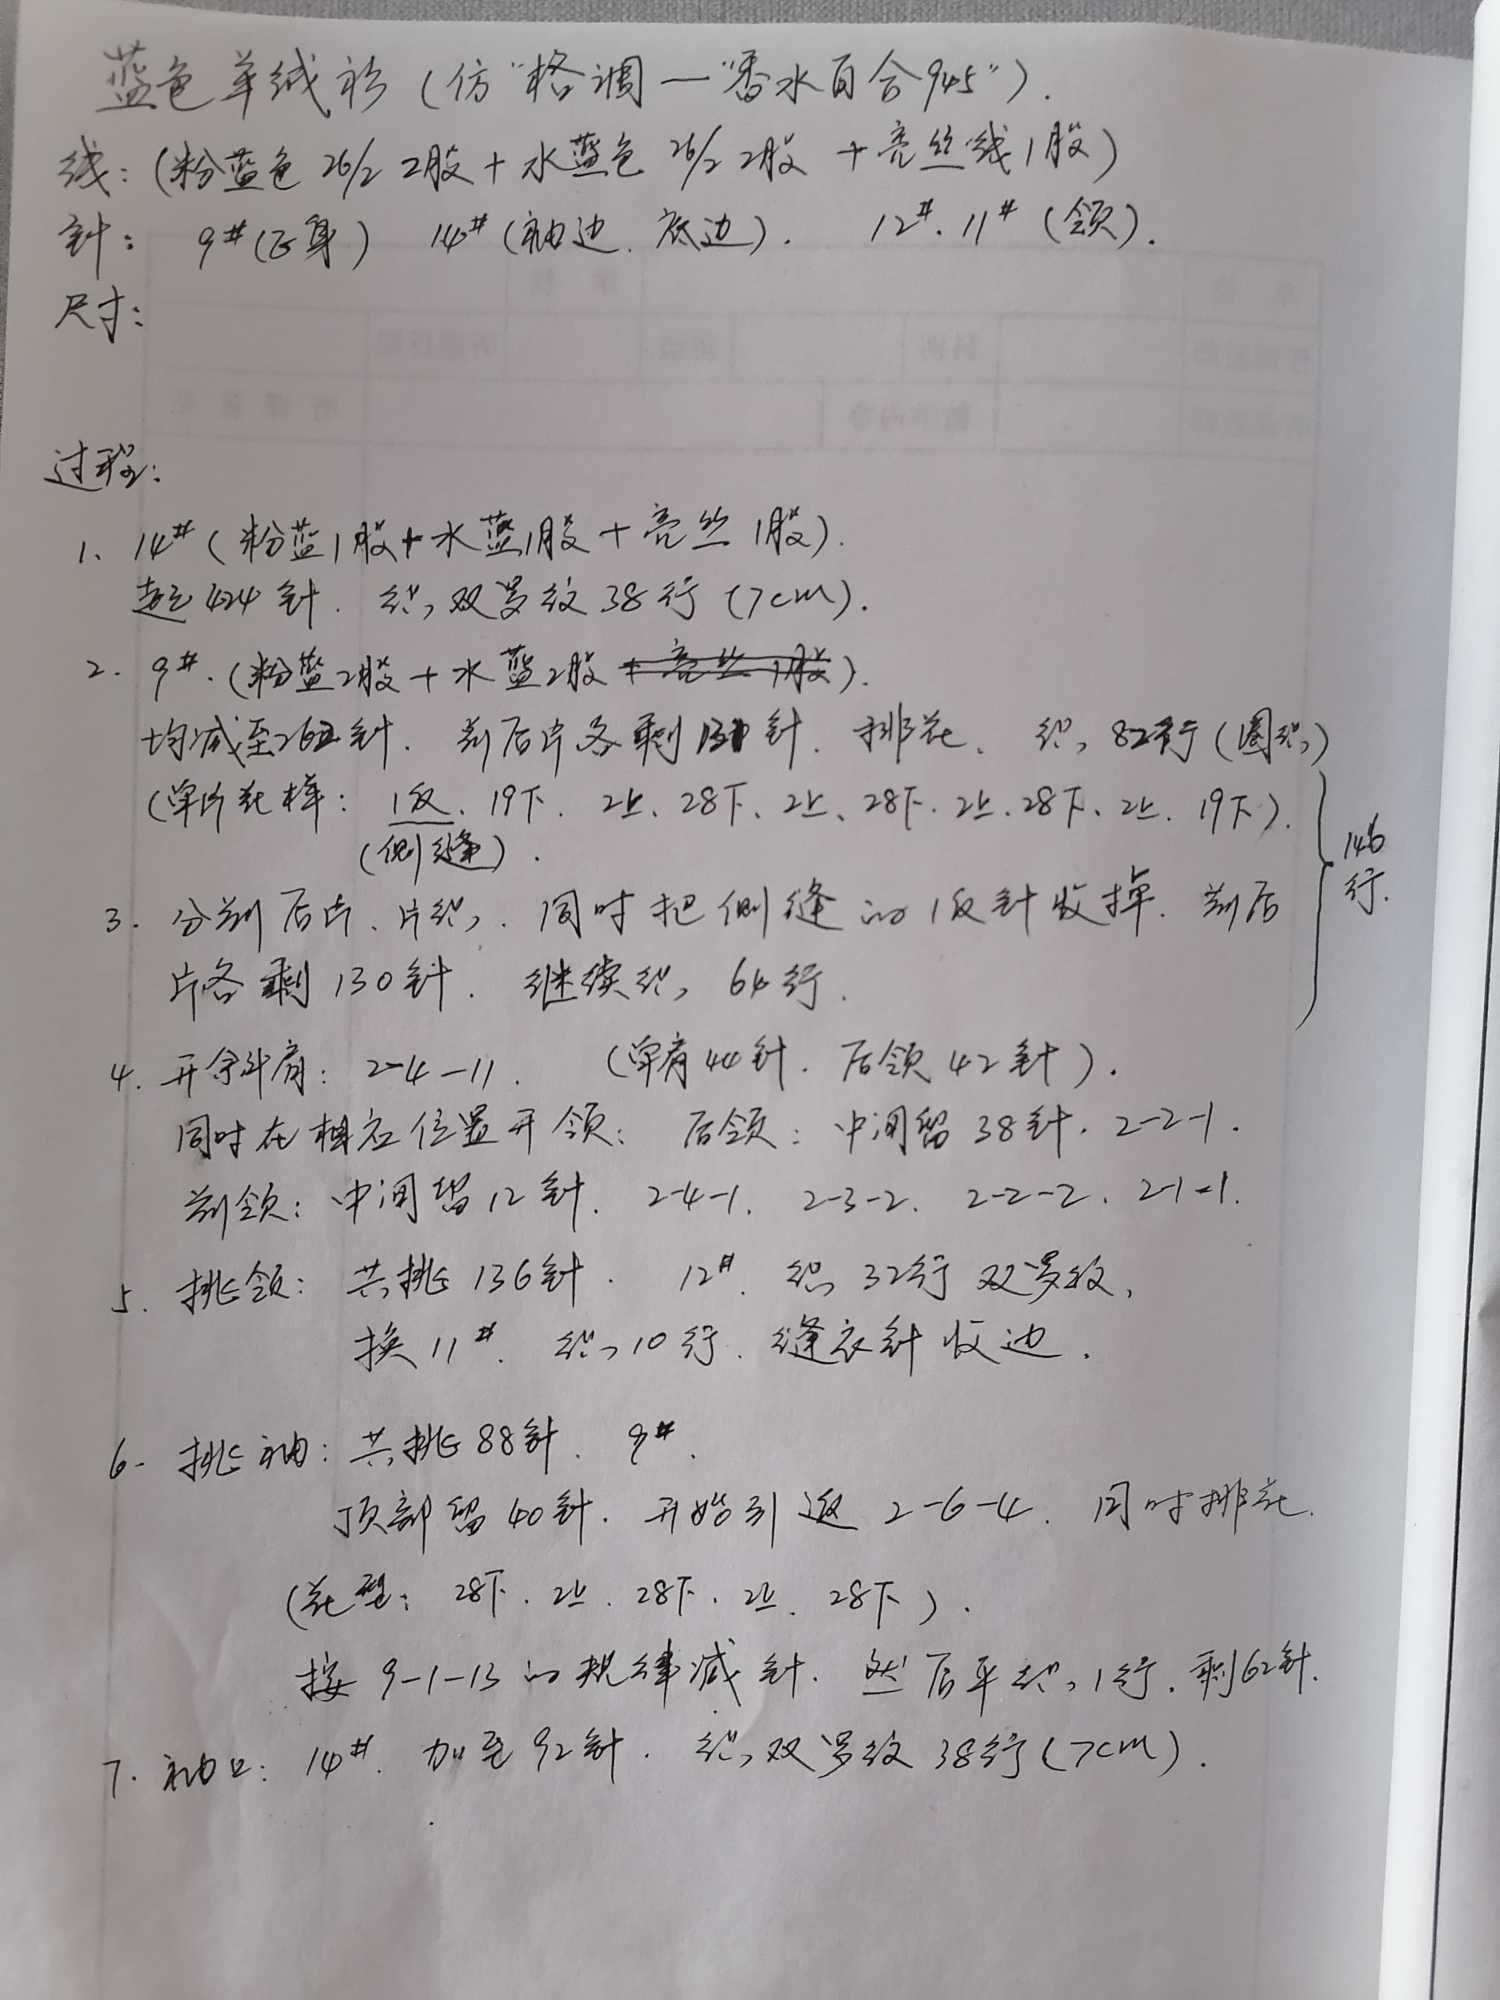 蓝色羊绒衫(仿“格调一“香水百合945”).
线:(粉蓝色 26/2 2股+水蓝色 26/2 2股 +亮丝线1股)
针: 9#(正身) 14#(袖边、底边). 12#.11#(领).
尺寸:
过程:
1、14#(粉蓝1股+水蓝1股+亮丝1股).
起424针. 织双罗纹38行(7cm).
2. 9#.(粉蓝2股+水蓝2股+亮丝1股).
均减至262针. 前后片各剩131针. 排花、织82行(圈织)
(单片花样: 1反、19下、2上、28下、2上、28下、2上、28下、2上、19下).
(侧缝).
146
行.
3. 分前后片、片织. 同时把侧缝的1反针收掉. 前后
片各剩130针. 继续织64行.
4. 开斜肩: 2-4-11. (单肩44针. 后领42针).
同时在相应位置开领: 后领: 中间留38针. 2-2-1.
前领: 中间留12针. 2-4-1. 2-3-2. 2-2-2. 2-1-1.
5. 挑领: 共挑136针. 12#. 织32行双罗纹.
换11#. 织10行. 缝衣针收边.
6. 挑袖: 共挑88针. 9#.
顶部留40针. 开始引返 2-6-4. 同时排花.
(花型: 28下. 2上. 28下. 2上. 28下).
按9-1-13的规律减针. 然后平织1行. 剩62针.
7. 袖口: 14#. 加至92针. 织双罗纹38行(7cm).